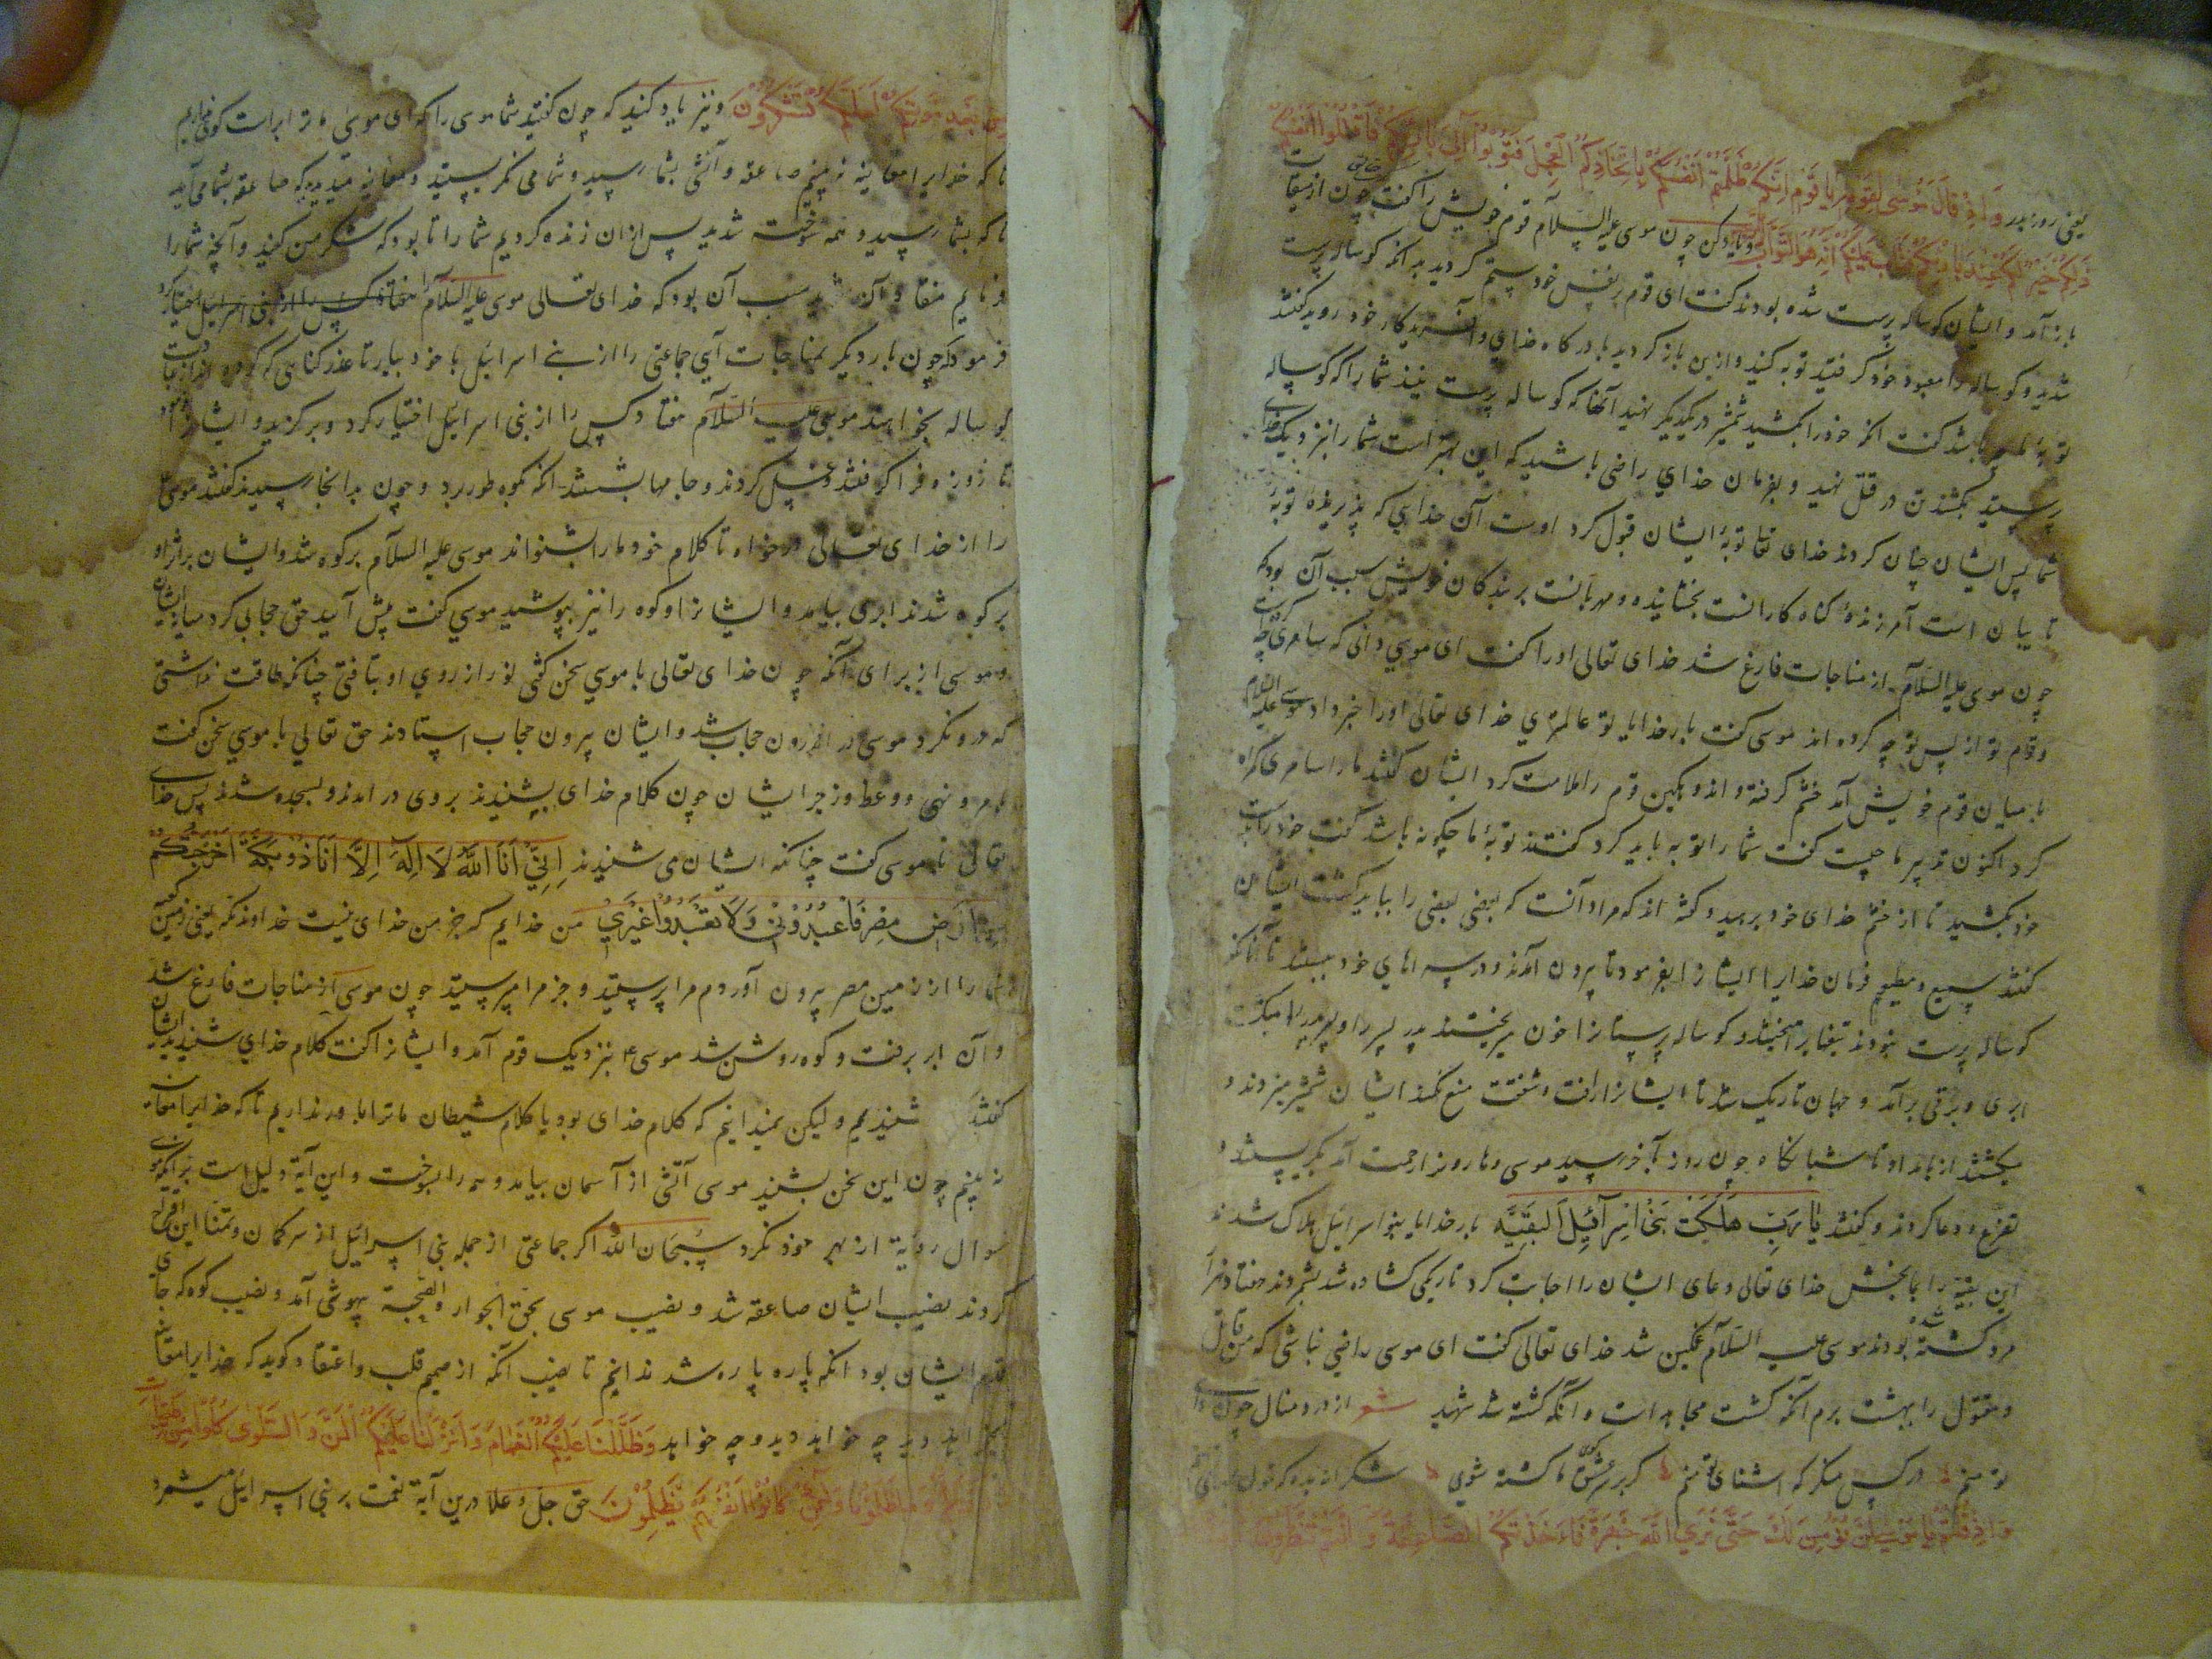 یعنی روز بدر وَاِذْ قَالَ مُوسٰی لِقَوْمِهٖ یَا قَوْمِ اِنَّکُمْ ظَلَمْتُمْ اَنْفُسَکُمْ بِاتِّخَاذِکُمُ الْعِجْلَ فَتُوبُوا اِلٰی بَارِئِکُمْ فَاقْتُلُوا اَنْفُسَکُمْ
ذٰلِکُمْ خَیْرٌ لَکُمْ عِنْدَ بَارِئِکُمْ فَتَابَ عَلَیْکُمْ اِنَّهُ هُوَ التَّوَّابُ ویاد کن چون موسی علیه السلام قوم خویش را کفت چون از میقات
باز آمد و ایشان کوساله پرست شده بودند کفت ای قوم بر نفس خود ستم کردید بدانکه کوساله پرست
شدید و کوساله را معبود خود کرفتید توبه کنید و ازین باز کردید بادرکاه خدای و آفریدکار خود روید کفتند
توبهٔ ما چه باشد کفت انکه خود را بکشید شمشیر در یکدیکر نهید آنها که کوساله پرست نیند شما را که کوساله
پرستید بکشند تن در قتل نهید و بفرمان خدای راضی باشید که این بهتر است شما را بنزدیک خدای
شما پس ایشان چنان کردند خدای تعا توبهٔ ایشان قبول کرد اوست آن خدایی که پذیرندهٔ توبهٔ
تایبان است آمرزندهٔ کناه کارانست بخشاینده و مهربانست بر بندکان خویش سبب آن بود که
چون موسی علیه السلام از مناجات فارغ شد خدای تعالی او را کفت ای موسی دانی که سامری چه کرد
وقوم تو از پس تو چه کرده اند موسی کفت بار خدایا تو عالمتری خدای تعالی او را خبر داد موسی علیه السلام
با میان قوم خویش آمد خشم کرفته و اندوهکین قوم را ملامت کرد ایشان کفتند ما را سامری کمراه
کرد اکنون تدبیر ما چیست کفت شما را توبه باید کرد کفتند توبهٔ ما چکونه باشد کفت خود را بدست
خود بکشید تا از خشم خدای خود برهید و کفته اند که مراد آنست که بعضی بعضی را بباید کشت ایشان
کفتند سمیع و مطیعیم فرمان خدایرا ایشانرا بفرمود تا بیرون آمدند و در سراهای خود ببستند تا آنانکه
کوساله پرست نبودند تیغها برآهیختند و کوساله پرستانرا خون میریختند پدر پسر را و پسر پدر را میکشت
ابری و برقی برآمد و جهان تاریک شد تا ایشانرا رافت و شفقت منع نکند ایشان شمشیر میزدند و
میکشتند از بامداد تا شبانکاه چون روز بآخر رسید موسی و هارونرا رحمت آمد بکریستند و
تضرع و دعا کردند و کفتند یَا رَبِّ هَلَکَتْ بَنُو اِسْرَآئِیلَ اَلْبَقِیَّه بار خدایا بنو اسرائیل هلاک شدند
این بقیه را بما بخش خدای تعالی دعای ایشان را اجابت کرد تاریکی کشاده شد بشمردند هفتاد هزار
مرد کشته شده بودند موسی علیه السلام غمکین شد خدای تعالی کفت ای موسی راضی نباشی که من قاتل
و مقتول را بهشت برم آنکه کشت مجاهد است و آنکه کشته شد شهید شعر از درد منال چون دوای
تو منم در کس منکر که اشنای تو منم کر بر سر کوی عشق ما کشته شوی شکرانه بده که
وَاِذْ قُلْتُمْ یَا مُوسٰی لَنْ نُؤْمِنَ لَکَ حَتّٰی نَرَی اللّٰهَ جَهْرَةً فَاَخَذَتْکُمُ الصَّاعِقَةُ وَاَنْتُمْ تَنْظُرُونَ
مِنْ بَعْدِ مَوْتِکُمْ لَعَلَّکُمْ تَشْکُرُونَ ونیز یاد کنید که چون کفتید شما موسی را که ای موسی ما ترا براست کوی نداریم
تا که خدایرا معاینه نه بینیم صاعقه و آتش بشما رسید و شما می نکریستید و معاینه میدیدید که صاعقه بشما می آید
تا که بشما رسید و همه سوخته شدید پس از ان زنده کردیم شما را تا بود که شکر من کنید و آنچه شما را
فرمایم منقاد آن شوید سبب آن بود که خدای تعالی موسی علیه السلام را هفتاد کس را از بنی اسرائیل اختیار کرد
فرمود که چون بار دیکر بمناجات آیی جماعتی را از بنے اسرائیل با خود بیار تا عذر کناهی که کرده اند از عبادت
کوساله بخواهند موسی علیه السلام هفتاد کس را از بنی اسرائیل اختیار کرد و برکزید و ایشانرا فرمود
تا روزه فراکرفتند و غسل کردند و جامها بشستند انکه بکوه طور برد و چون بدانجا رسیدند کفتند موسی
را از خدای تعالی درخواه تا کلام خود ما را بشنواند موسی علیه السلام بر کوه شد و ایشان بر اثر او
بر کوه شدند ابری بیامد و ایشانرا و کوه را نیز بپوشید موسی کفت پیش آیید حق حجابی کرد میان ایشان
و موسی از برای آنکه چون خدای تعالی با موسی سخن کفتی نور از روی او بتافتی چنانکه طاقت نداشتی
که در و نکرد موسی در اندرون حجاب شد و ایشان بیرون حجاب استادند حق تعالی با موسی سخن کفت
بامر و نهی و وعظ و زجر ایشان چون کلام خدای بشنیدند بروی در آمدند و بسجده شدند پس خدای
تعالی با موسی کفت چنانکه ایشان می شنیدند اِنِّیْ اَنَا اللّٰهُ لَا اِلٰهَ اِلَّا اَنَا ذُو بَکَّةَ اَخْرَجْتُکُمْ
مِنْ اَرْضِ مِصْرَ فَاعْبُدُوْنِیْ وَلَا تَعْبُدُوْا غَیْرِیْ من خدایم که جز من خدای نیست خداوند مکه یعنی زمین مکه
شما را از زمین مصر بیرون آوردم مرا پرستید و جز مرا مپرستید چون موسی از مناجات فارغ شد
و آن ابر برفت و کوه روشن شد موسی ۴ بنزدیک قوم آمد و ایشانرا کفت کلام خدای شنیدید ایشان
کفتند شنیدیم و لیکن نمیدانیم که کلام خدای بود یا کلام شیطان ما ترا باور نداریم تا که خدایرا معاینه
نه بینیم چون این سخن بشنید موسی آتشی از آسمان بیامد و همه را بسوخت و این آیة دلیل است بر آنکه موسی
سوال رویة از بهر خود نکرد سُبْحَانَ اللّٰه اکر جماعتی از جمله بنی اسرائیل از سر کمان و تمنا این اقتراح
کردند نصیب ایشان صاعقه شد و نصیب موسی بحق الجوار والصحبة بیهوشی آمد و نصیب کوه که جای
قدم ایشان بود انکه پاره پاره شد ندانیم تا نصیب آنکه از صمیم قلب و اعتقاد کوید که خدایرا معاینه
بخواهند دید چه خواهد دید و چه خواهد وَظَلَّلْنَا عَلَیْکُمُ الْغَمَامَ وَاَنْزَلْنَا عَلَیْکُمُ الْمَنَّ وَالسَّلْوٰی کُلُوا مِنْ طَیِّبَاتِ
وَمَا ظَلَمُونَا وَلٰکِنْ کَانُوا اَنْفُسَهُمْ یَظْلِمُوْنَ حق جل و علا درین آیة نعمت بر بنی اسرائیل میشمرد